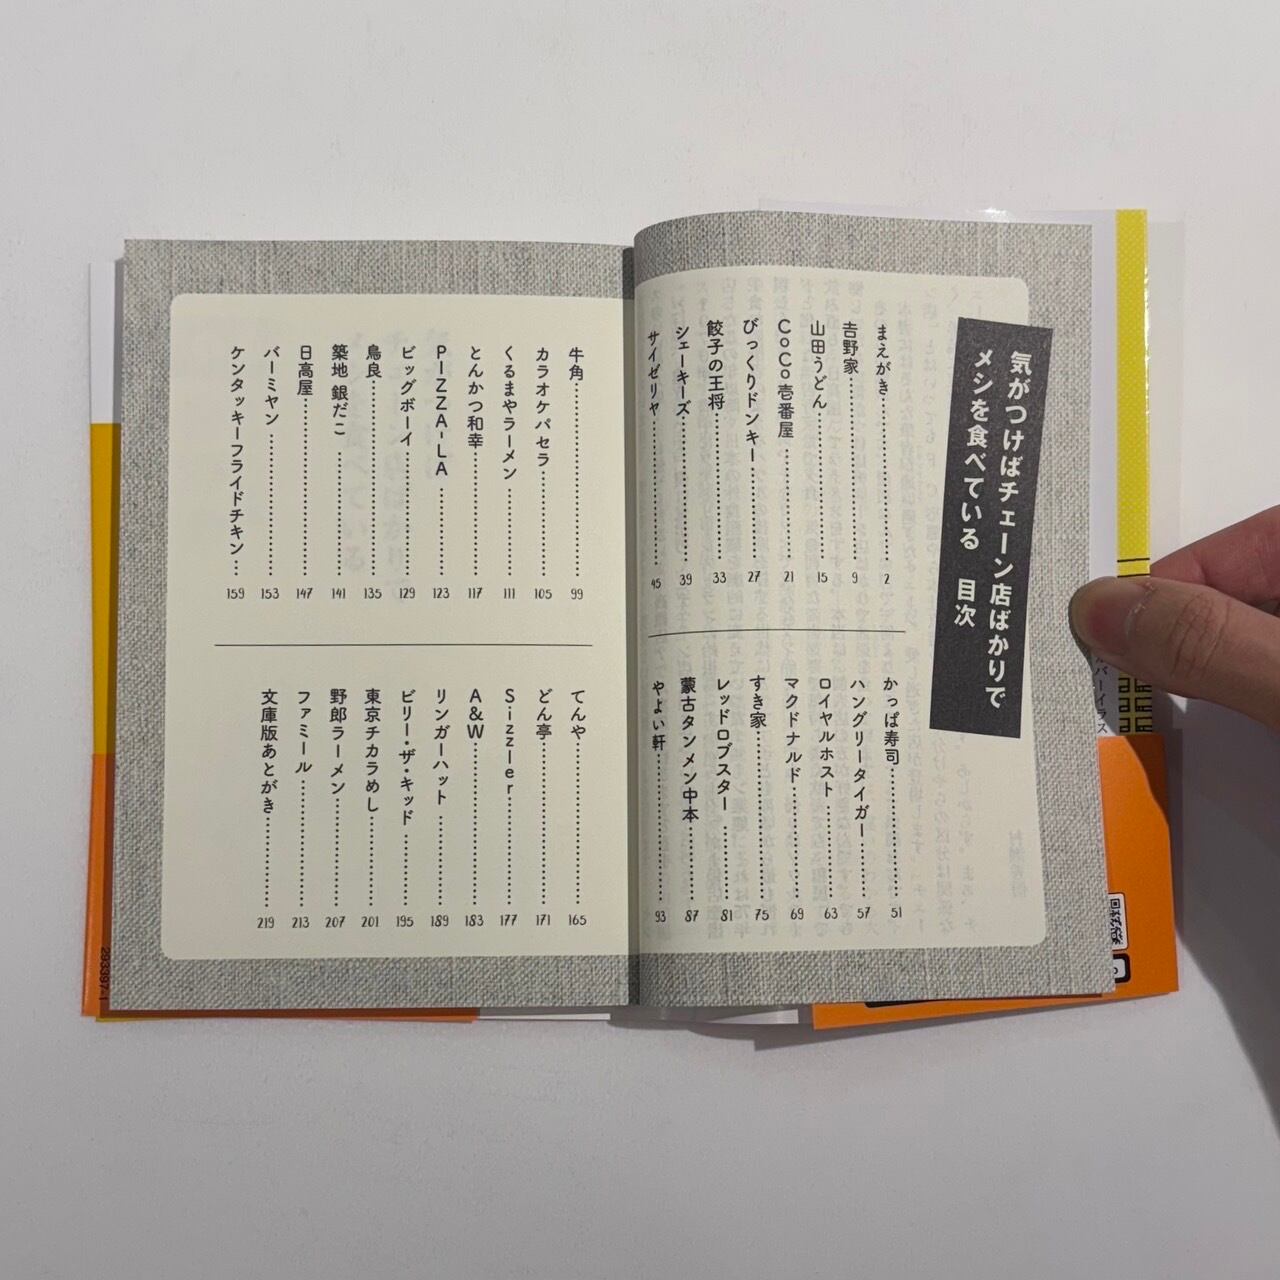 気がつけばチェーン店ばかりで
メシを食べている 目次
まえがき 2
吉野家 9
山田うどん 15
CoCo壱番屋 21
びっくりドンキー 27
餃子の王将 33
シェーキーズ 39
サイゼリヤ 45
かっぱ寿司 51
ハングリータイガー 57
ロイヤルホスト 63
マクドナルド 69
すき家 75
レッドロブスター 81
蒙古タンメン中本 87
やよい軒 93
牛角 99
カラオケパセラ 105
くるまやラーメン 111
とんかつ和幸 117
PIZZA-LA 123
ビッグボーイ 129
鳥良 135
築地 銀だこ 141
日高屋 147
バーミヤン 153
ケンタッキーフライドチキン 159
てんや 165
どん亭 171
Sizzler 177
A&W 183
リンガーハット 189
ビリー・ザ・キッド 195
東京チカラめし 201
野郎ラーメン 207
ファミール 213
文庫版あとがき 219
293397-1
バーイラス